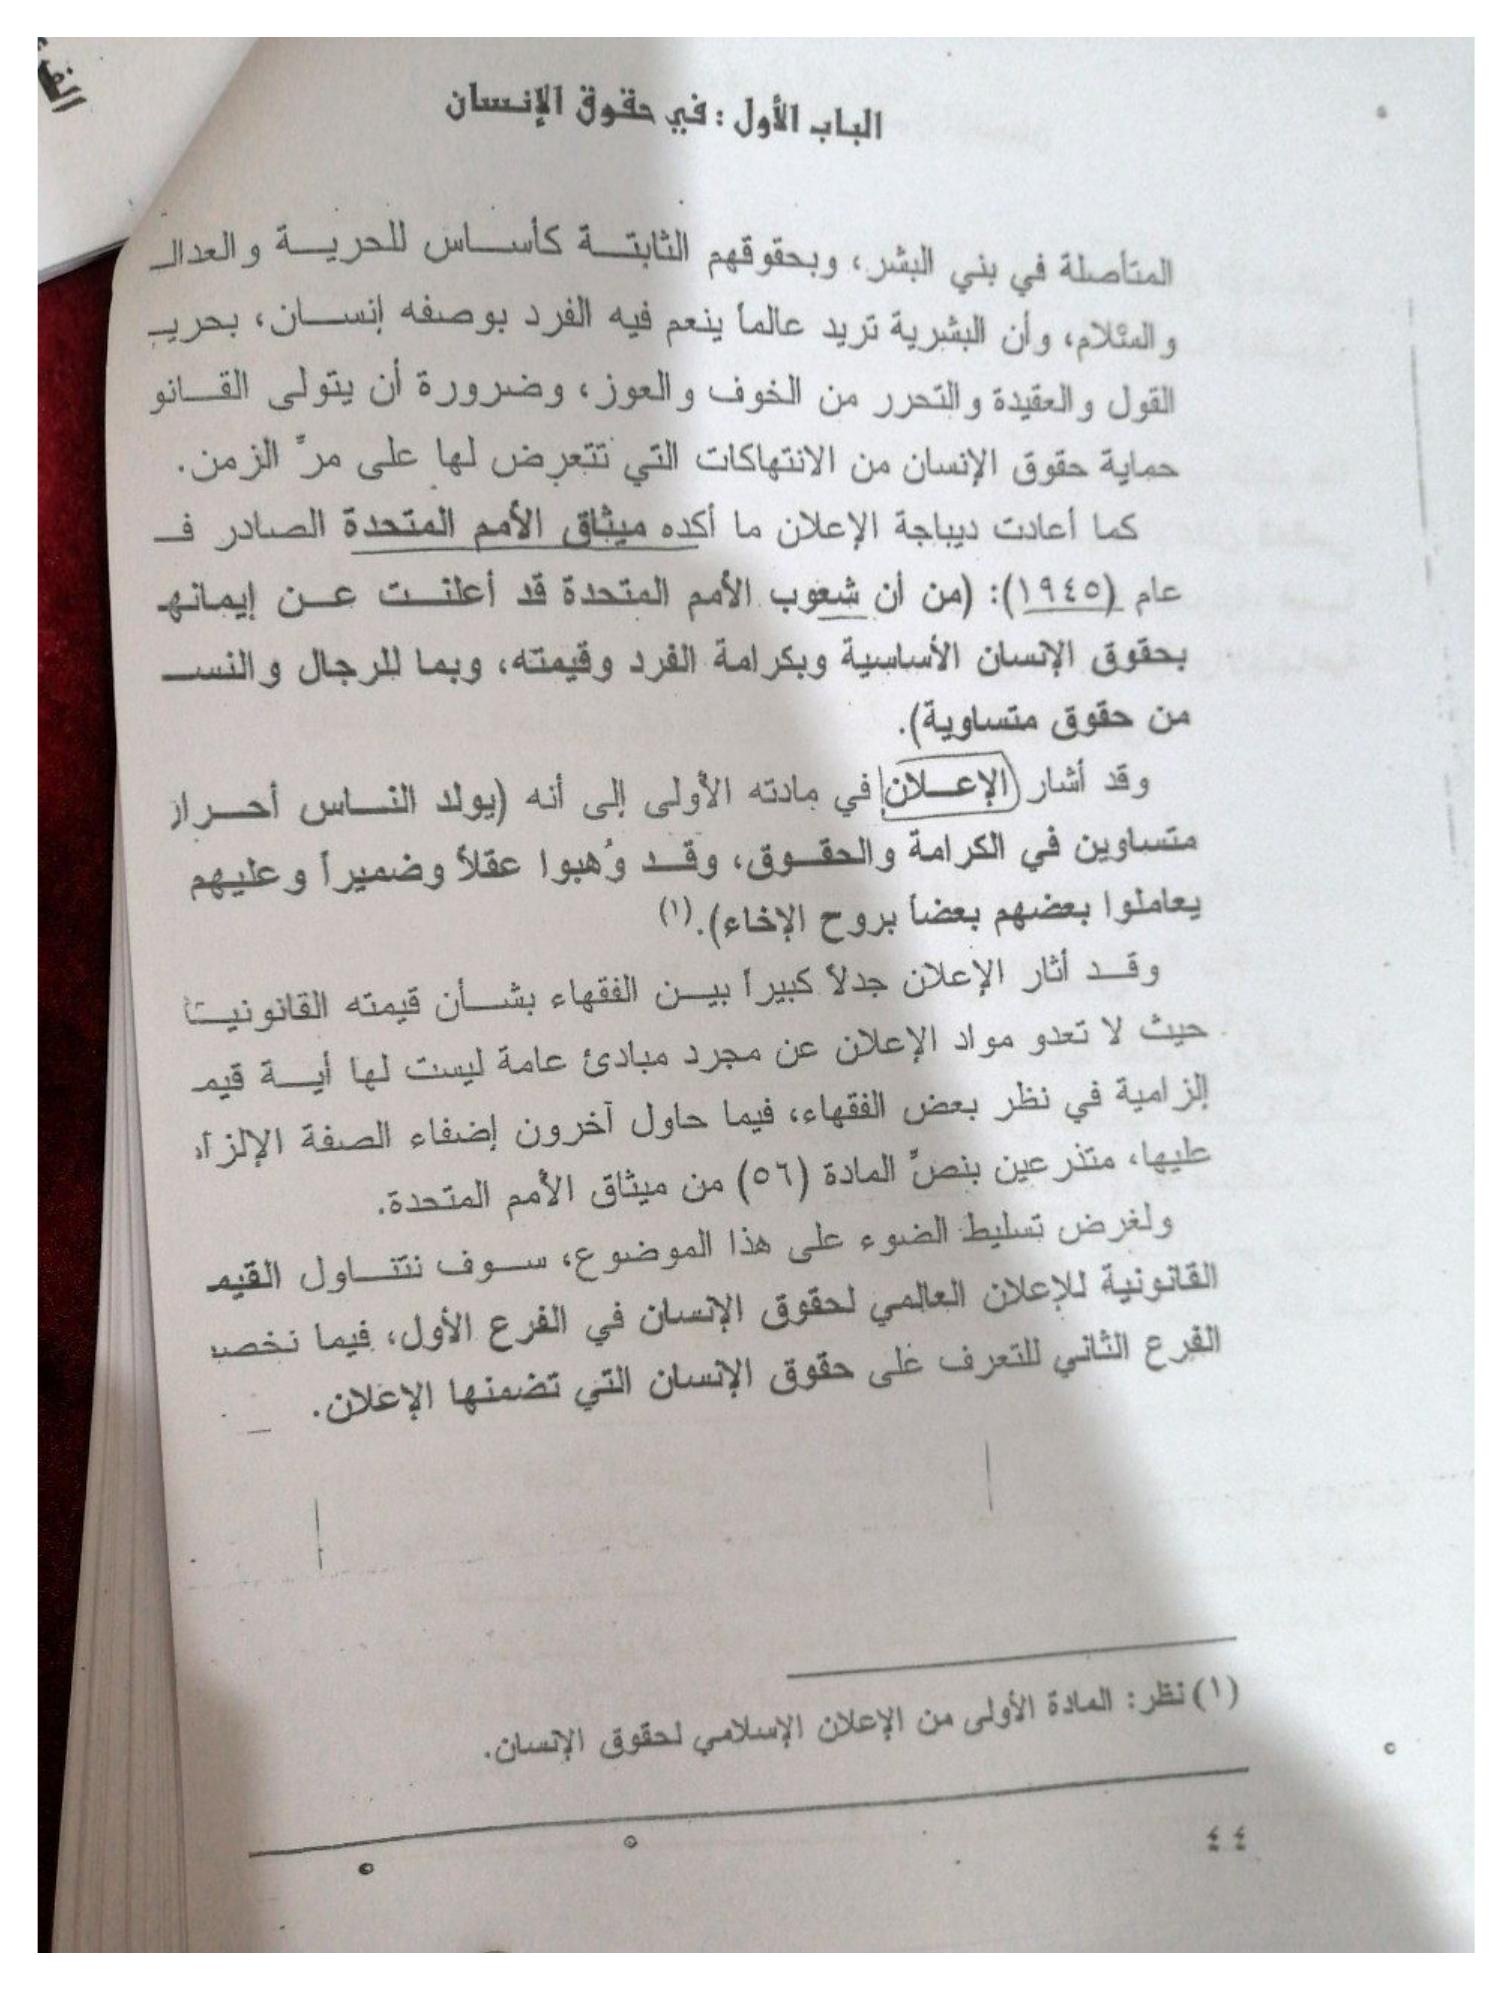 الباب الأول : في حقوق الإنسان
المتأصلة في بني البشر، وبحقوقهم الثابتة كأساس للحرية والعدالـ
والسّلام، وأن البشرية تريد عالماً ينعم فيه الفرد بوصفه إنسان، بحريـ
القول والعقيدة والتحرر من الخوف والعوز، وضرورة أن يتولى القانو
حماية حقوق الإنسان من الانتهاكات التي تتعرض لها على مرّ الزمن.
كما أعادت ديباجة الإعلان ما أكده ميثاق الأمم المتحدة الصادر فـ
عام (١٩٤٥): (من أن شعوب الأمم المتحدة قد أعلنت عن إيمانهـ
بحقوق الإنسان الأساسية وبكرامة الفرد وقيمته، وبما للرجال والنسـ
من حقوق متساوية).
وقد أشار الإعلان في مادته الأولى إلى أنه (يولد الناس أحرار
متساوين في الكرامة والحقوق، وقد وُهبوا عقلاً وضميراً وعليهم
يعاملوا بعضهم بعضاً بروح الإخاء).(١)
وقد أثار الإعلان جدلاً كبيراً بين الفقهاء بشأن قيمته القانونية
حيث لا تعدو مواد الإعلان عن مجرد مبادئ عامة ليست لها أية قيمـ
إلزامية في نظر بعض الفقهاء، فيما حاول آخرون إضفاء الصفة الإلزاـ
عليها، متذرعين بنصّ المادة (٥٦) من ميثاق الأمم المتحدة.
ولغرض تسليط الضوء على هذا الموضوع، سوف نتناول القيمـ
القانونية للإعلان العالمي لحقوق الإنسان في الفرع الأول، فيما نخصـ
الفرع الثاني للتعرف على حقوق الإنسان التي تضمنها الإعلان.
(١) نظر: المادة الأولى من الإعلان الإسلامي لحقوق الإنسان.
٤٤